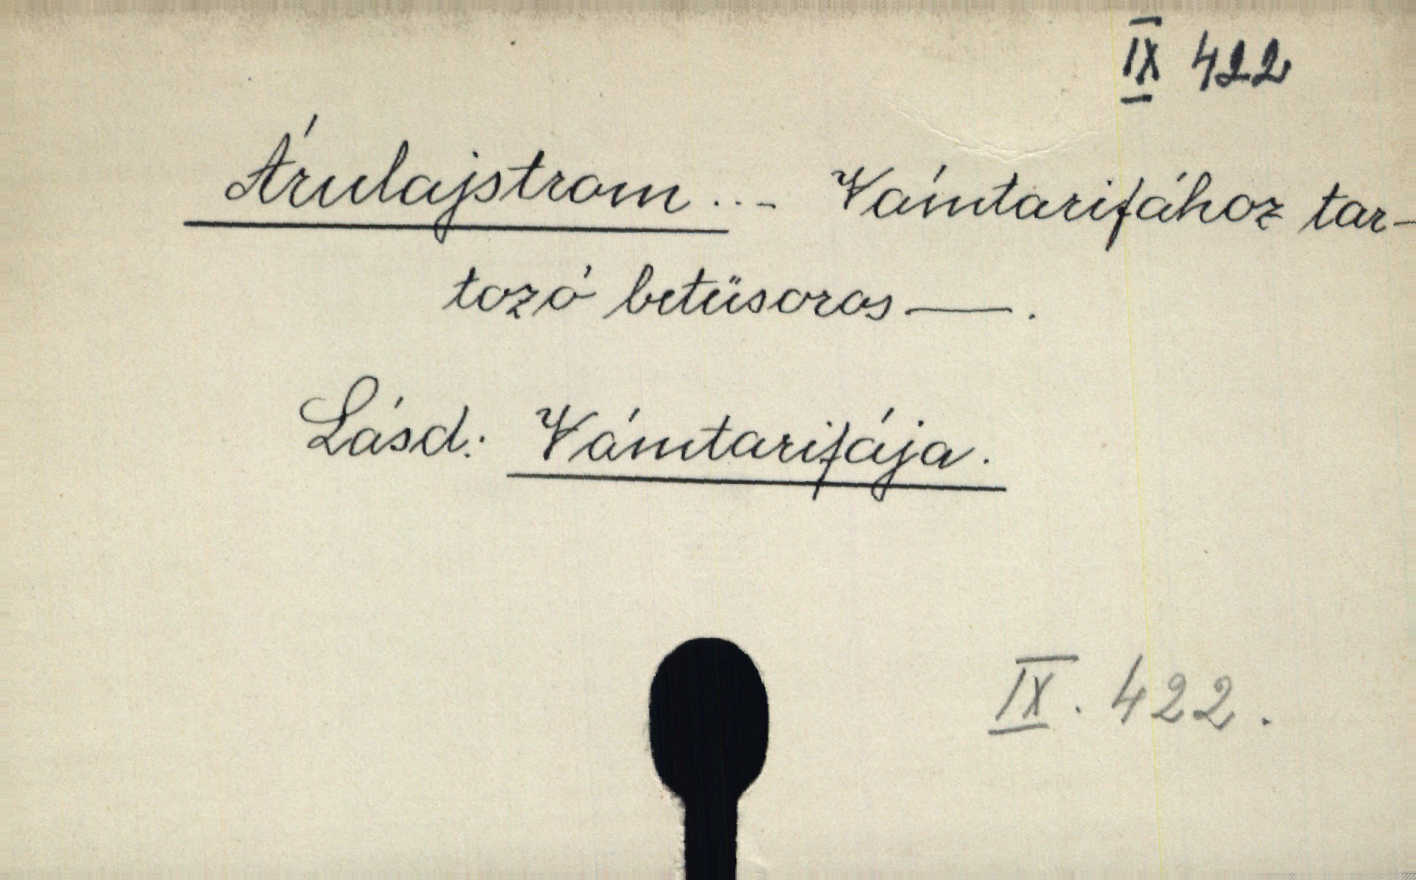 IX 422
Árulajstrom ... Vámtarifához tar-
tozó betüsoros —.
Lásd: Vámtarifája.
IX. 422.